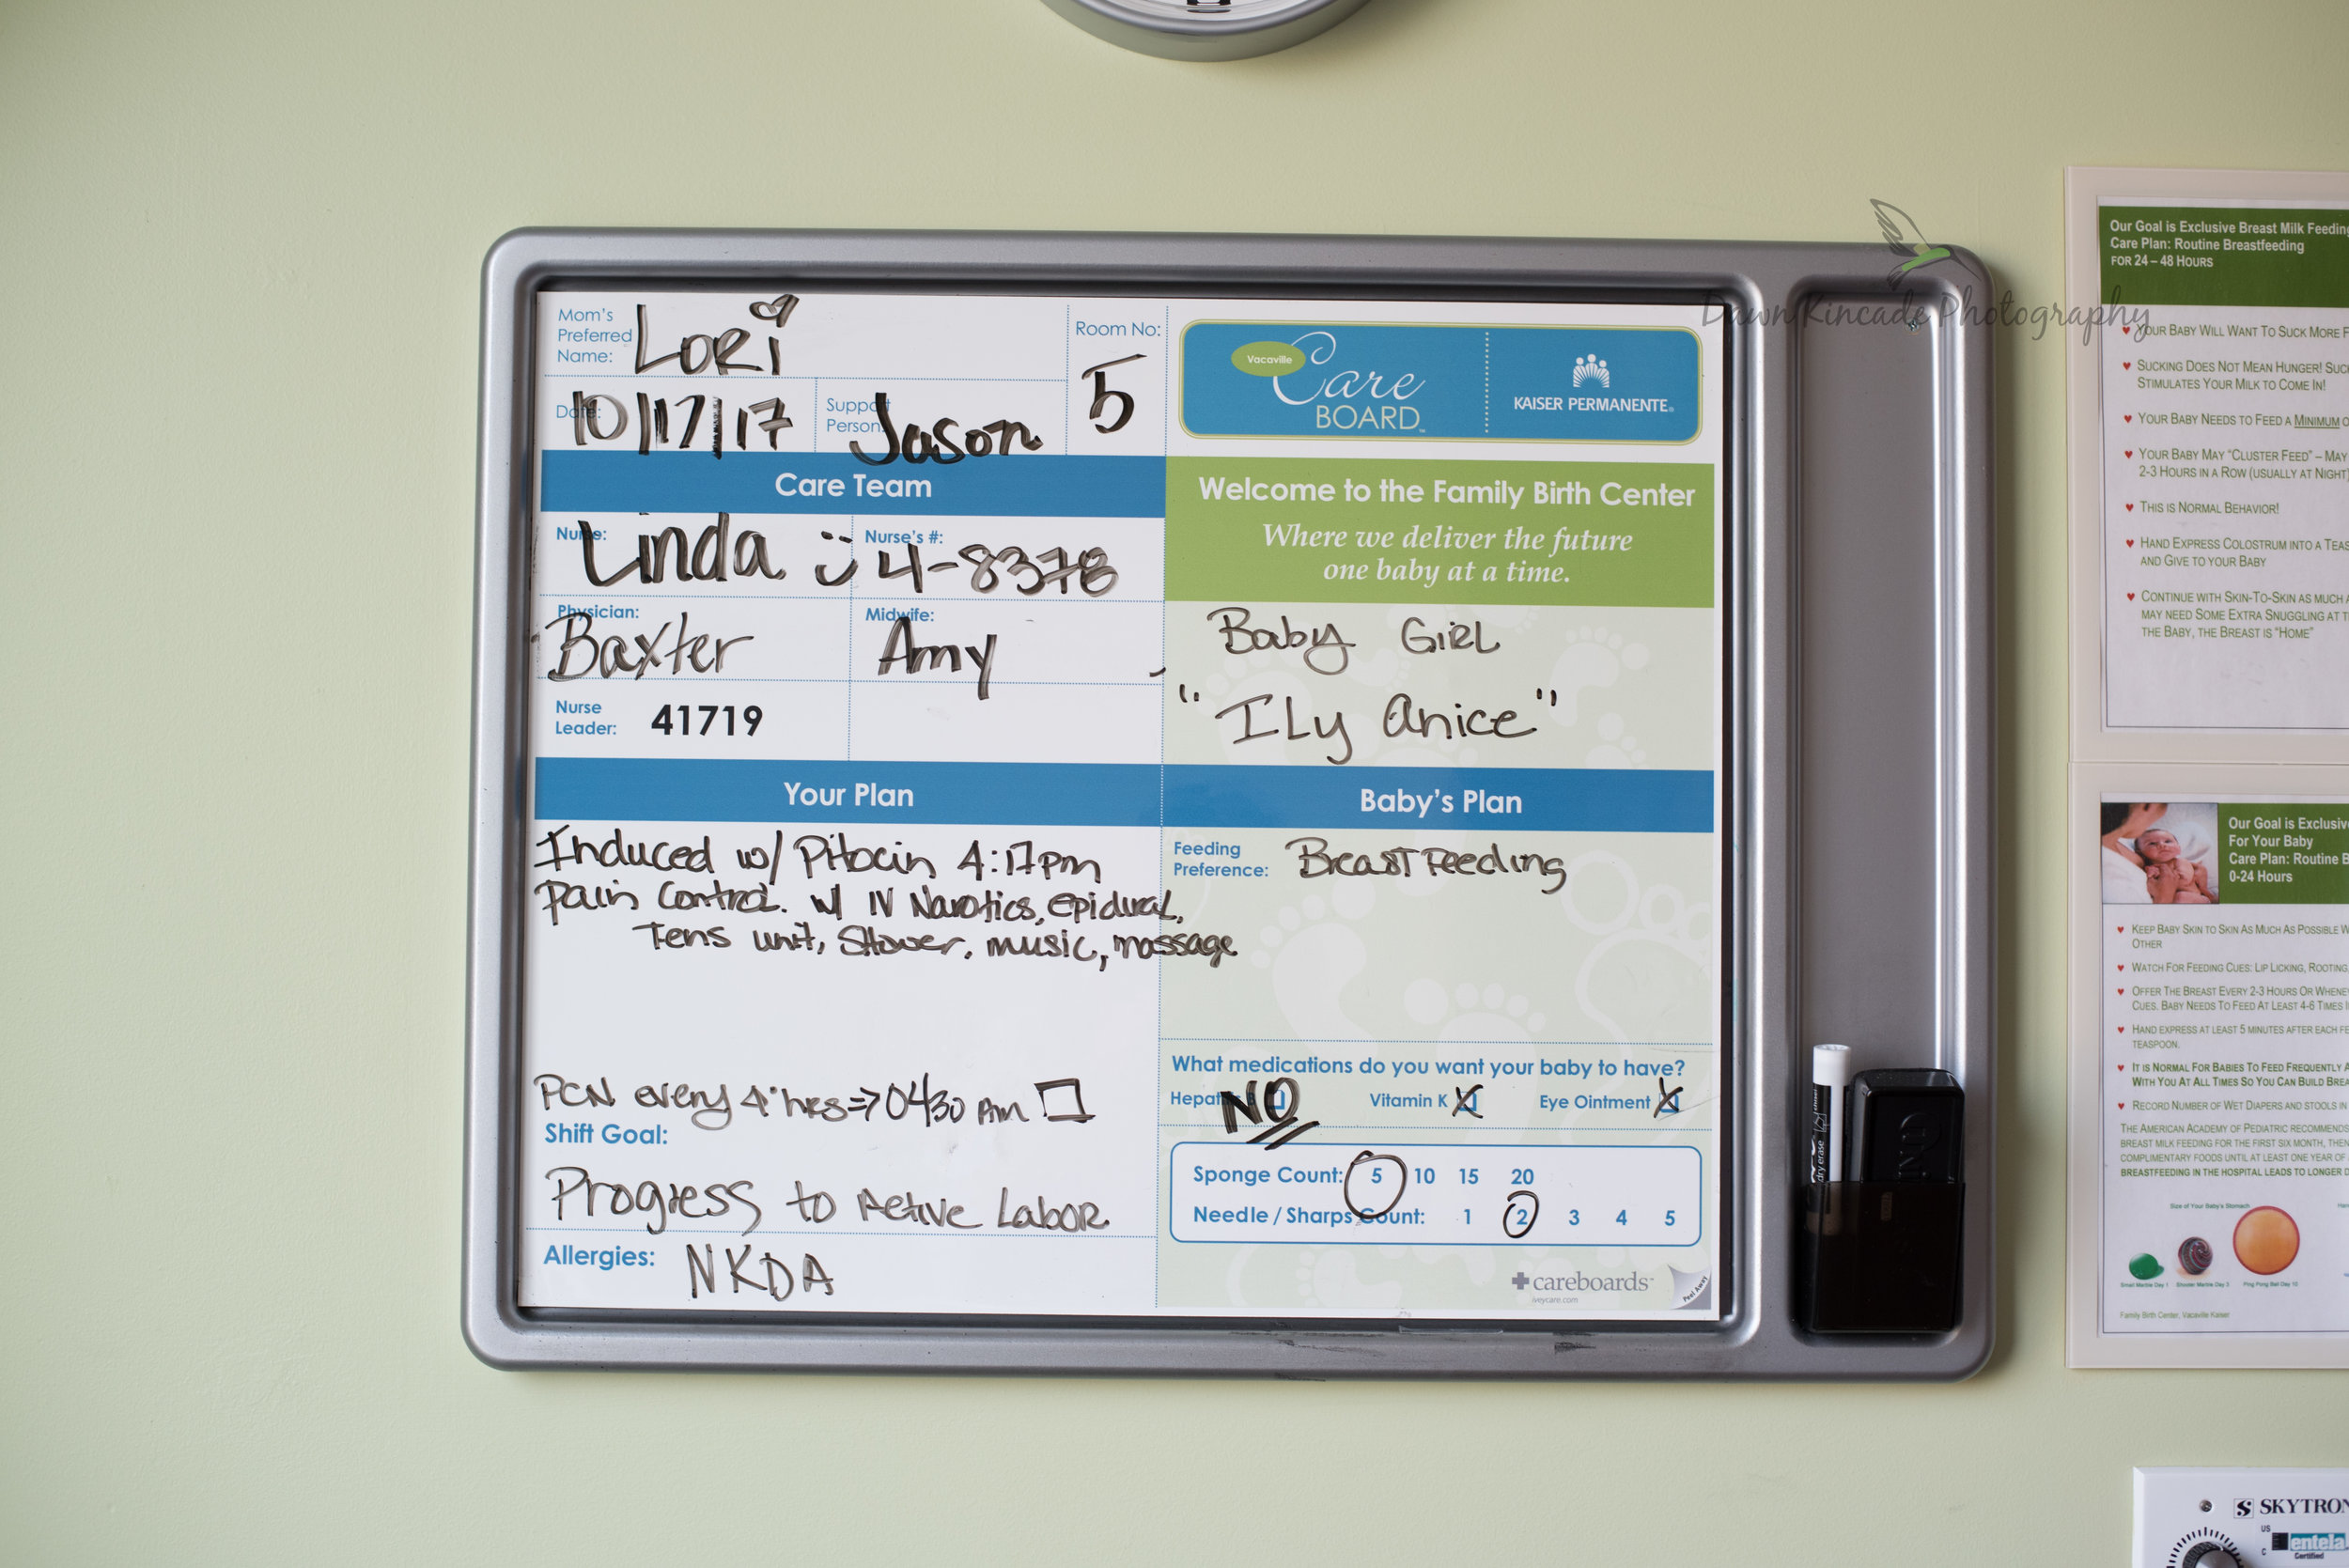 Mom's
Preferred
Name:
Lori
Room No:
5
Date:
10/17/17
Support
Person:
Jason
Vacaville
Care
BOARD
KAISER PERMANENTE®
Care Team
Nurse:
Linda
Nurse's #:
4-8378
Physician:
Baxter
Midwife:
Amy
Nurse
Leader:
41719
Welcome to the Family Birth Center
Where we deliver the future
one baby at a time.
Baby Girl
"ILy Anice"
Your Plan
Induced w/ Pitocin 4:17pm
Pain Control. w/ IV Narotics, epidural,
Tens unit, Shower, music, massage
PCN every 4° hrs => 0430 Am
Shift Goal:
Progress to Active Labor
Allergies:
NKDA
Baby's Plan
Feeding
Preference:
BreastFeeding
What medications do you want your baby to have?
NO
Vitamin K
Eye Ointment
Sponge Count: 5 10 15 20
Needle / Sharps Count: 1 2 3 4 5
careboards™
iveycare.com
Peel Away
Dawn Kincade Photography
Our Goal is Exclusive Breast Milk Feeding
Care Plan: Routine Breastfeeding
FOR 24 – 48 HOURS
YOUR BABY WILL WANT TO SUCK MORE
SUCKING DOES NOT MEAN HUNGER!
STIMULATES YOUR MILK TO COME IN!
YOUR BABY NEEDS TO FEED A MINIMUM
YOUR BABY MAY "CLUSTER FEED" – MAY
2-3 HOURS IN A ROW (USUALLY AT NIGHT)
THIS IS NORMAL BEHAVIOR!
HAND EXPRESS COLOSTRUM INTO A
AND GIVE TO YOUR BABY
CONTINUE WITH SKIN-TO-SKIN AS MUCH
MAY NEED SOME EXTRA SNUGGLING AT
THE BABY, THE BREAST IS "HOME"
Our Goal is Exclusive
For Your Baby
Care Plan: Routine
0-24 Hours
KEEP BABY SKIN TO SKIN AS MUCH AS POSSIBLE
OTHER
WATCH FOR FEEDING CUES: LIP LICKING, ROOTING,
OFFER THE BREAST EVERY 2-3 HOURS OR
CUES. BABY NEEDS TO FEED AT LEAST 4-6 TIMES
HAND EXPRESS AT LEAST 5 MINUTES AFTER EACH
TEASPOON.
IT IS NORMAL FOR BABIES TO FEED FREQUENTLY
WITH YOU AT ALL TIMES SO YOU CAN BUILD
RECORD NUMBER OF WET DIAPERS AND STOOLS IN
THE AMERICAN ACADEMY OF PEDIATRIC RECOMMENDS
BREAST MILK FEEDING FOR THE FIRST SIX MONTH,
COMPLIMENTARY FOODS UNTIL AT LEAST ONE YEAR OF
BREASTFEEDING IN THE HOSPITAL LEADS TO LONGER
Size of Your Baby's Stomach
Small Marble Day 1
Shooter Marble Day 3
Ping Pong Ball Day 10
Family Birth Center, Vacaville Kaiser
SKYTRON
US
C
entela
Certified